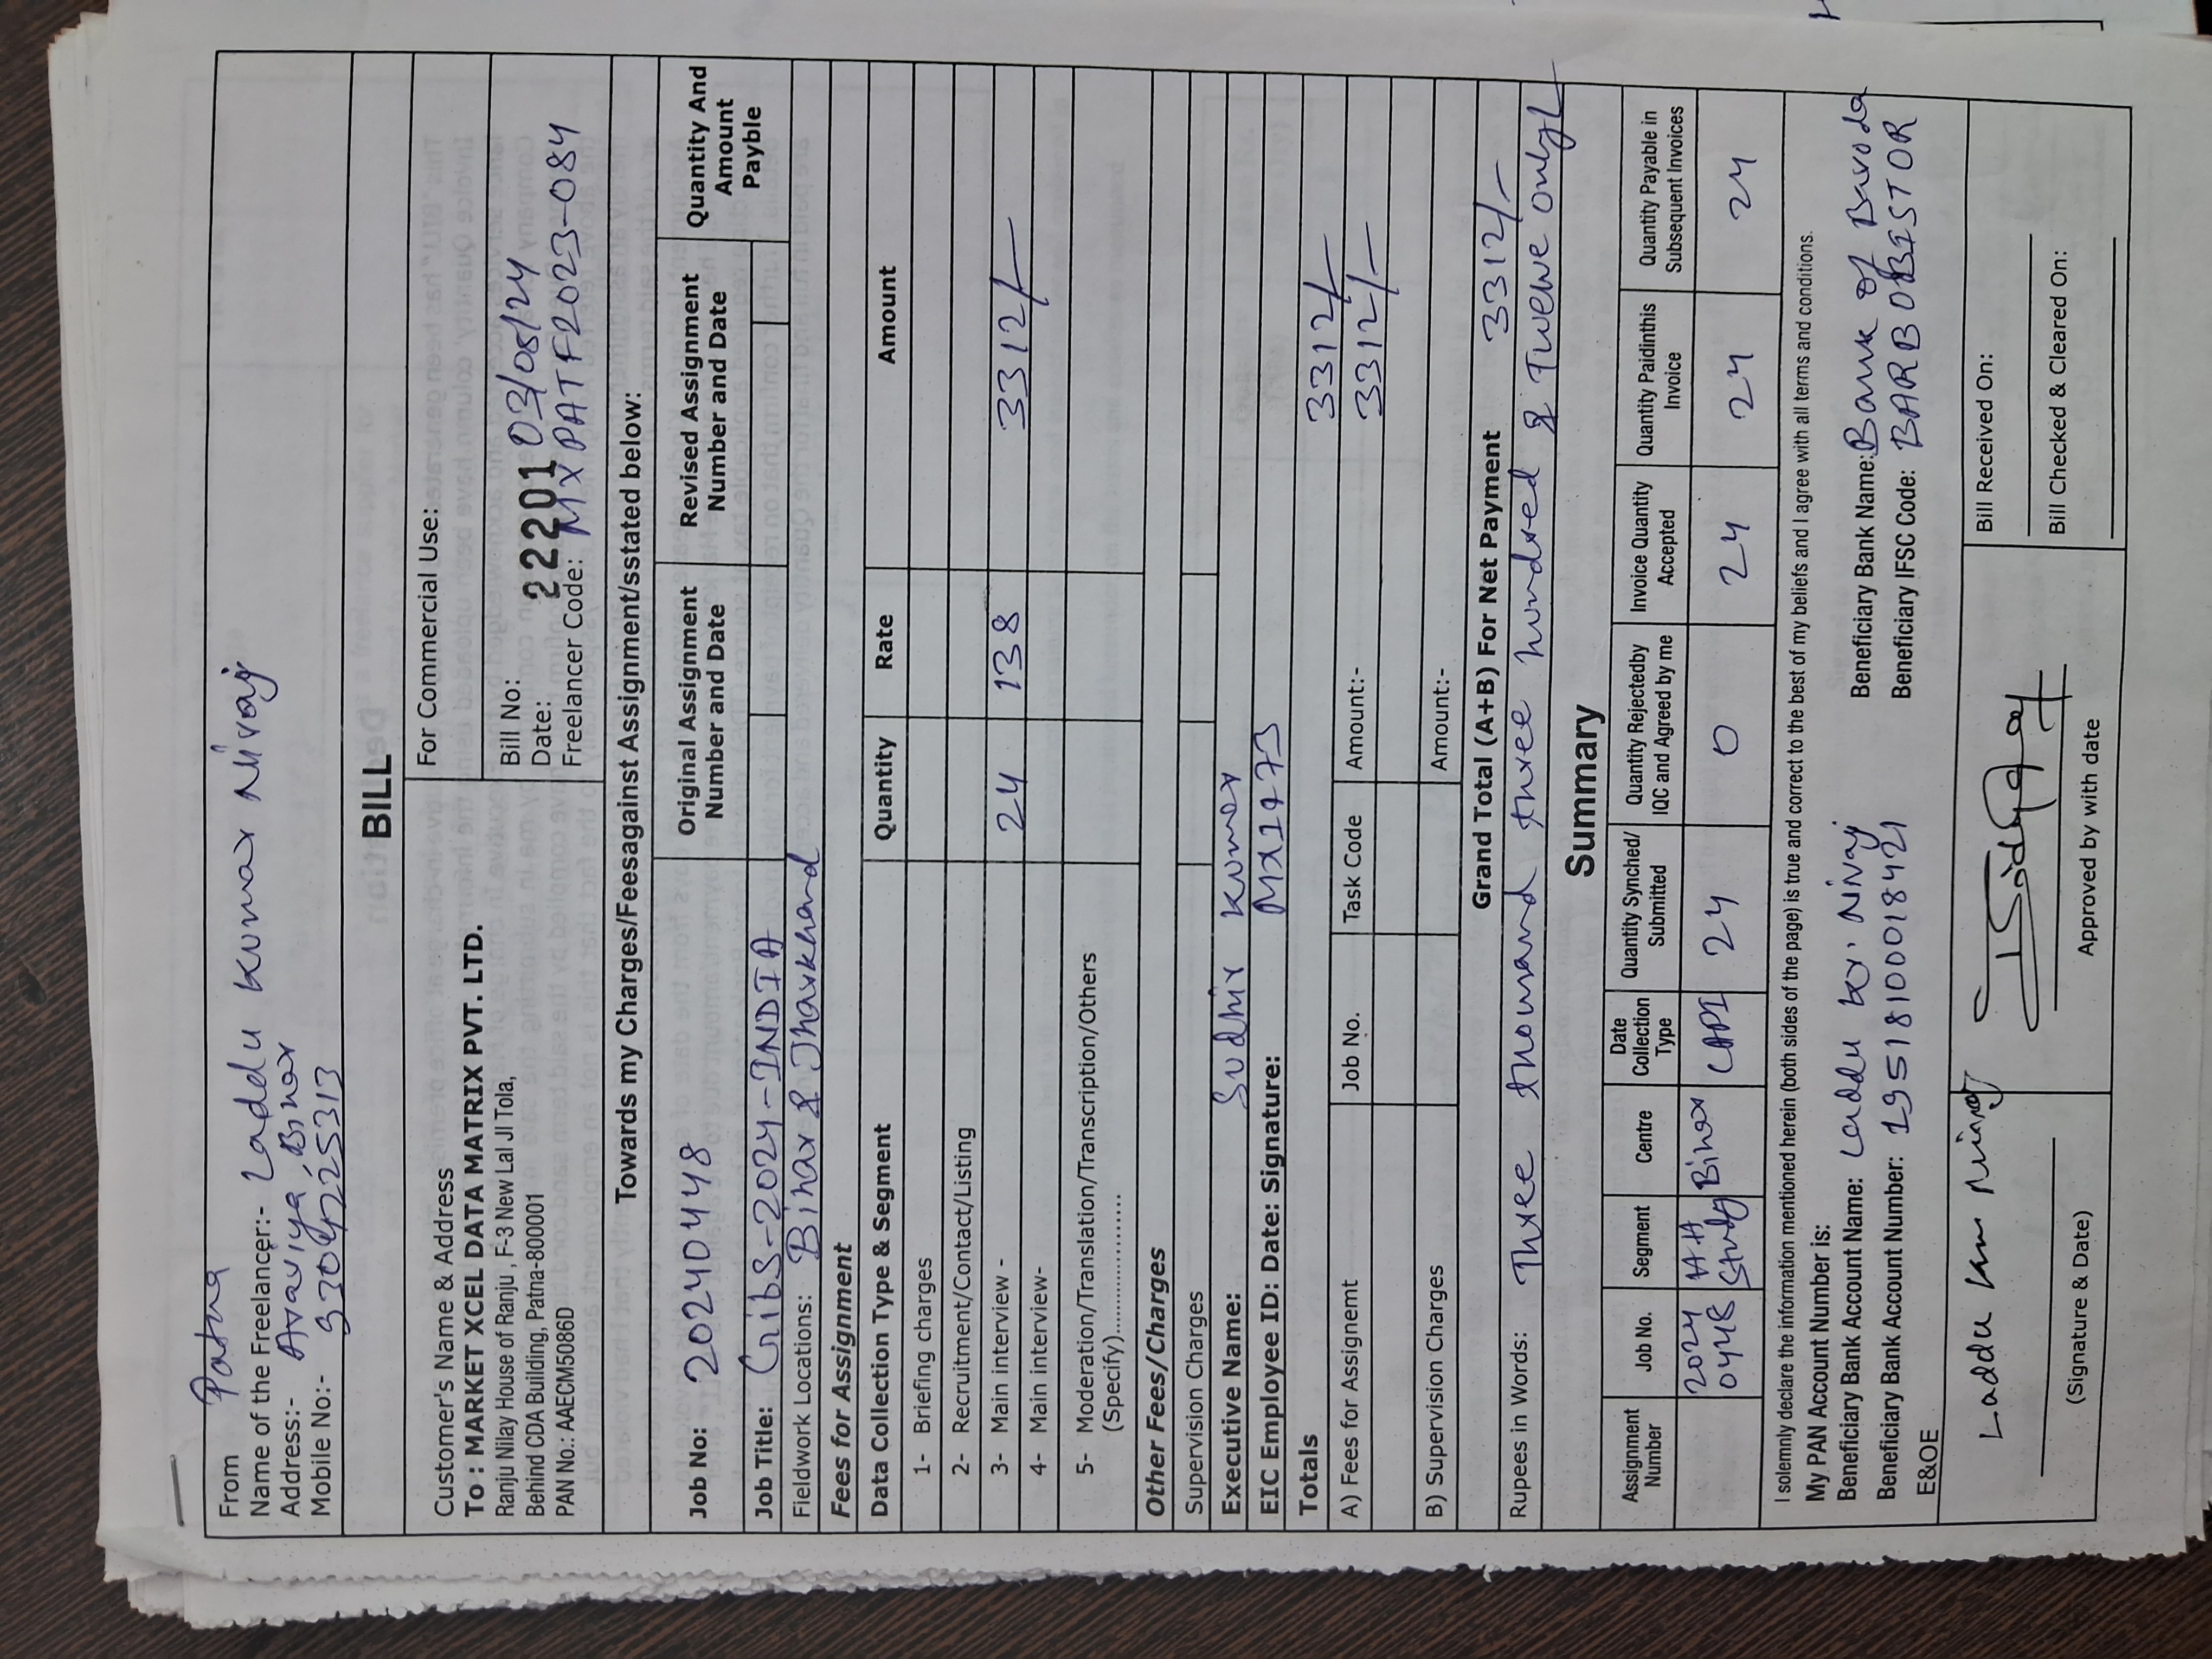 Patna
From
Name of the Freelancer:- Laddu Kumar Niraj
Address:- Bihar
Mobile No:-
BILL
Customer's Name & Address
For Commercial Use:
To : MARKET XCEL DATA MATRIX PVT. LTD.
Ranju Nilay House of Ranju , F-3 New Lal JI Tola,
Behind CDA Building, Patna-800001
PAN No.: AAECM5086D
Bill No: 22201
Date: 03/08/24
Freelancer Code: MXPATF2023-084
Towards my Charges/Feesagainst Assignment/sstated below:
Job No: 20240448
Original Assignment Number and Date
Revised Assignment Number and Date
Quantity And Amount Payable
Job Title: -2024-INDIA
Fieldwork Locations: Bihar & Jharkhand
Fees for Assignment
Data Collection Type & Segment Quantity Rate Amount
1- Briefing charges
2- Recruitment/Contact/Listing
3- Main interview - 24 138 3312/-
4- Main interview-
5- Moderation/Translation/Transcription/Others
(Specify).....................
Other Fees/Charges
Supervision Charges
Executive Name: Sudhir Kumar
EIC Employee ID: Date: Signature:
Totals 3312/-
A) Fees for Assignemt Job No. Task Code Amount:- 3312/-
B) Supervision Charges Amount:-
Grand Total (A+B) For Net Payment 3312/-
Rupees in Words: Three thousand three hundred & Twelve only
Summary
Assignment Number Job No. Segment Centre Date Collection Type Quantity Synched/ Submitted Quantity Rejectedby IQC and Agreed by me Invoice Quantity Accepted Quantity Paidinthis Invoice Quantity Payable in Subsequent Invoices
2024 0448 HH Study Bihar CAPI 24 0 24 24 24
I solemnly declare the information mentioned herein (both sides of the page) is true and correct to the best of my beliefs and I agree with all terms and conditions.
My PAN Account Number is:
Beneficiary Bank Account Name: Laddu Kr. Niraj Beneficiary Bank Name: Bank of Baroda
Beneficiary Bank Account Number: 19518100018421 Beneficiary IFSC Code:
E&OE
Laddu Kum Niraj
(Signature & Date)
Approved by with date
Bill Received On:
Bill Checked & Cleared On: